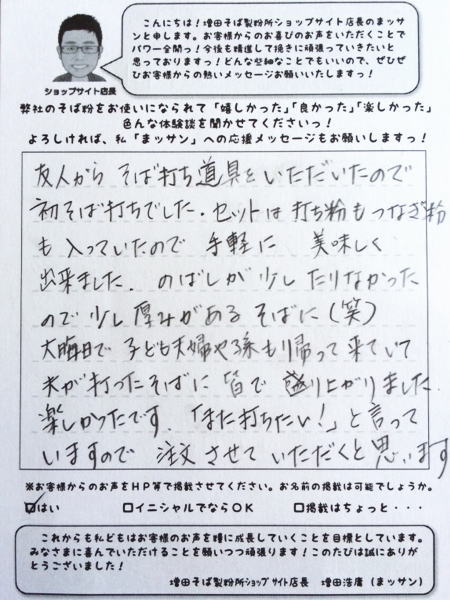 こんにちは！増田そば製粉所ショップサイト店長のまッサ
ンと申します。お客様からのお喜びのお声をいただくことで
パワー全開っ！今後も精進して挽きに頑張っていきたいと
思っておりますっ！どんな些細なことでもいいので、ぜひぜ
ひお客様からの熱いメッセージお願いいたしますっ！
ショップサイト店長
弊社のそば粉をお使いになられて「嬉しかった」「良かった」「楽しかった」
色んな体験談を聞かせてくださいっ！
よろしければ、私「まッサン」への応援メッセージもお願いしますっ！
友人から そば打ち道具を いただいたので
初そば打ちでした．セットは 打ち粉もつなぎ粉
も 入っていたので 手軽に 美味しく
出来ました． のばしが 少し たりなかった
ので 少し 厚みがある そばに（笑）
大晦日で 子ども夫婦や孫も 帰って 来ていて
夫が打ったそばに 皆で 盛り上がりました．
楽しかったです．「また打ちたい！」と言って
いますので 注文 させて いただくと思います
※お客様からのお声をＨＰ等で掲載させてください。お名前の掲載は可能でしょうか。
☑はい □イニシャルでならＯＫ □掲載はちょっと・・・
これからも私どもはお客様のお声を糧に成長していくことを目標としています。
みなさまに喜んでいただけることを願いつつ頑張ります！このたびは誠にありが
とうございました！
増田そば製粉所ショップサイト店長 増田浩庸（まッサン）